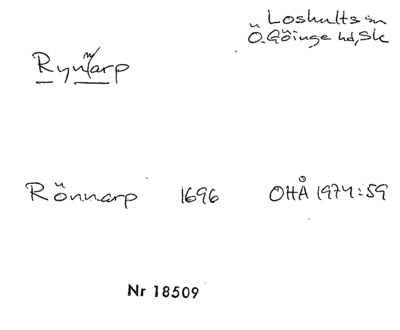 Loshults sn
Ö. Göinge hd, Sk
Rynarp
Rönnarp 1696 OHÅ 1974:59
Nr 18509